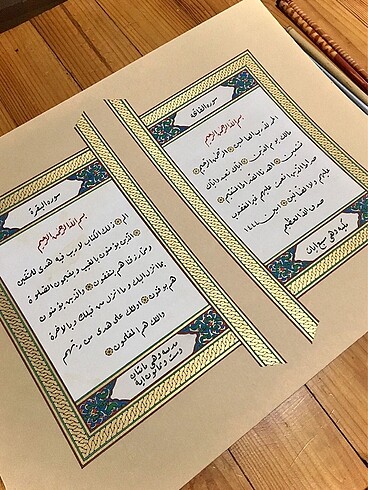 سورة الفاتحة
بسم الله الرحمن الرحيم
الحمد لله رب العالمين الرحمن الرحيم
مالك يوم الدين إياك نعبد وإياك
نستعين اهدنا الصراط المستقيم
صراط الذين أنعمت عليهم غير المغضوب
عليهم ولا الضالين آمين
صدق الله العظيم
مكية وهي سبع آيات
سورة البقرة
بسم الله الرحمن الرحيم
الم ذلك الكتاب لا ريب فيه هدى للمتقين
الذين يؤمنون بالغيب ويقيمون الصلوة
ومما رزقناهم ينفقون والذين يؤمنون
بما أنزل إليك وما أنزل من قبلك وبالآخرة
هم يوقنون اولئك على هدى من ربهم
واولئك هم المفلحون
مدنية وهي مائتان
وست وثمانون آية